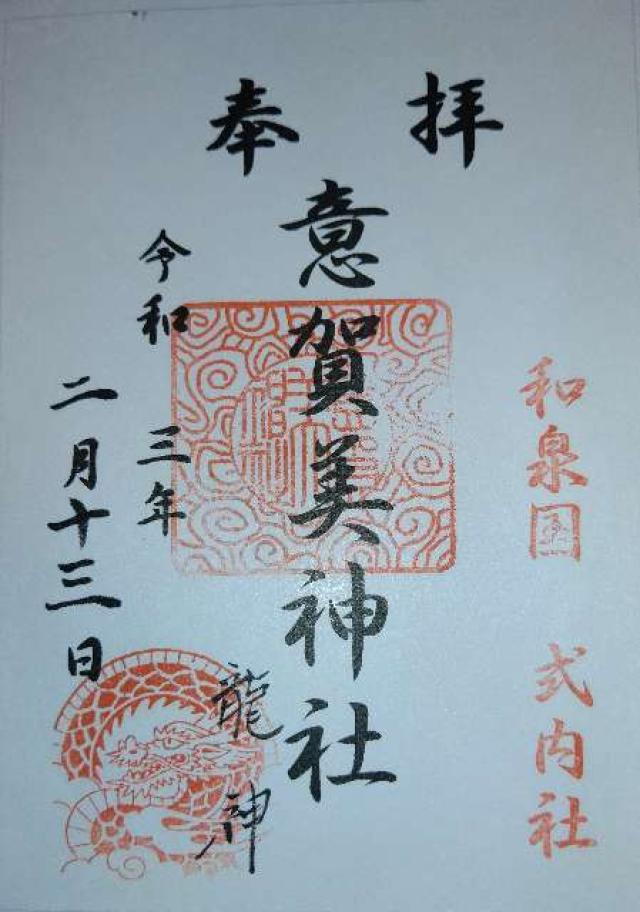 奉拝
和泉国 式内社
意賀美神社
龍神
令和三年
二月十三日